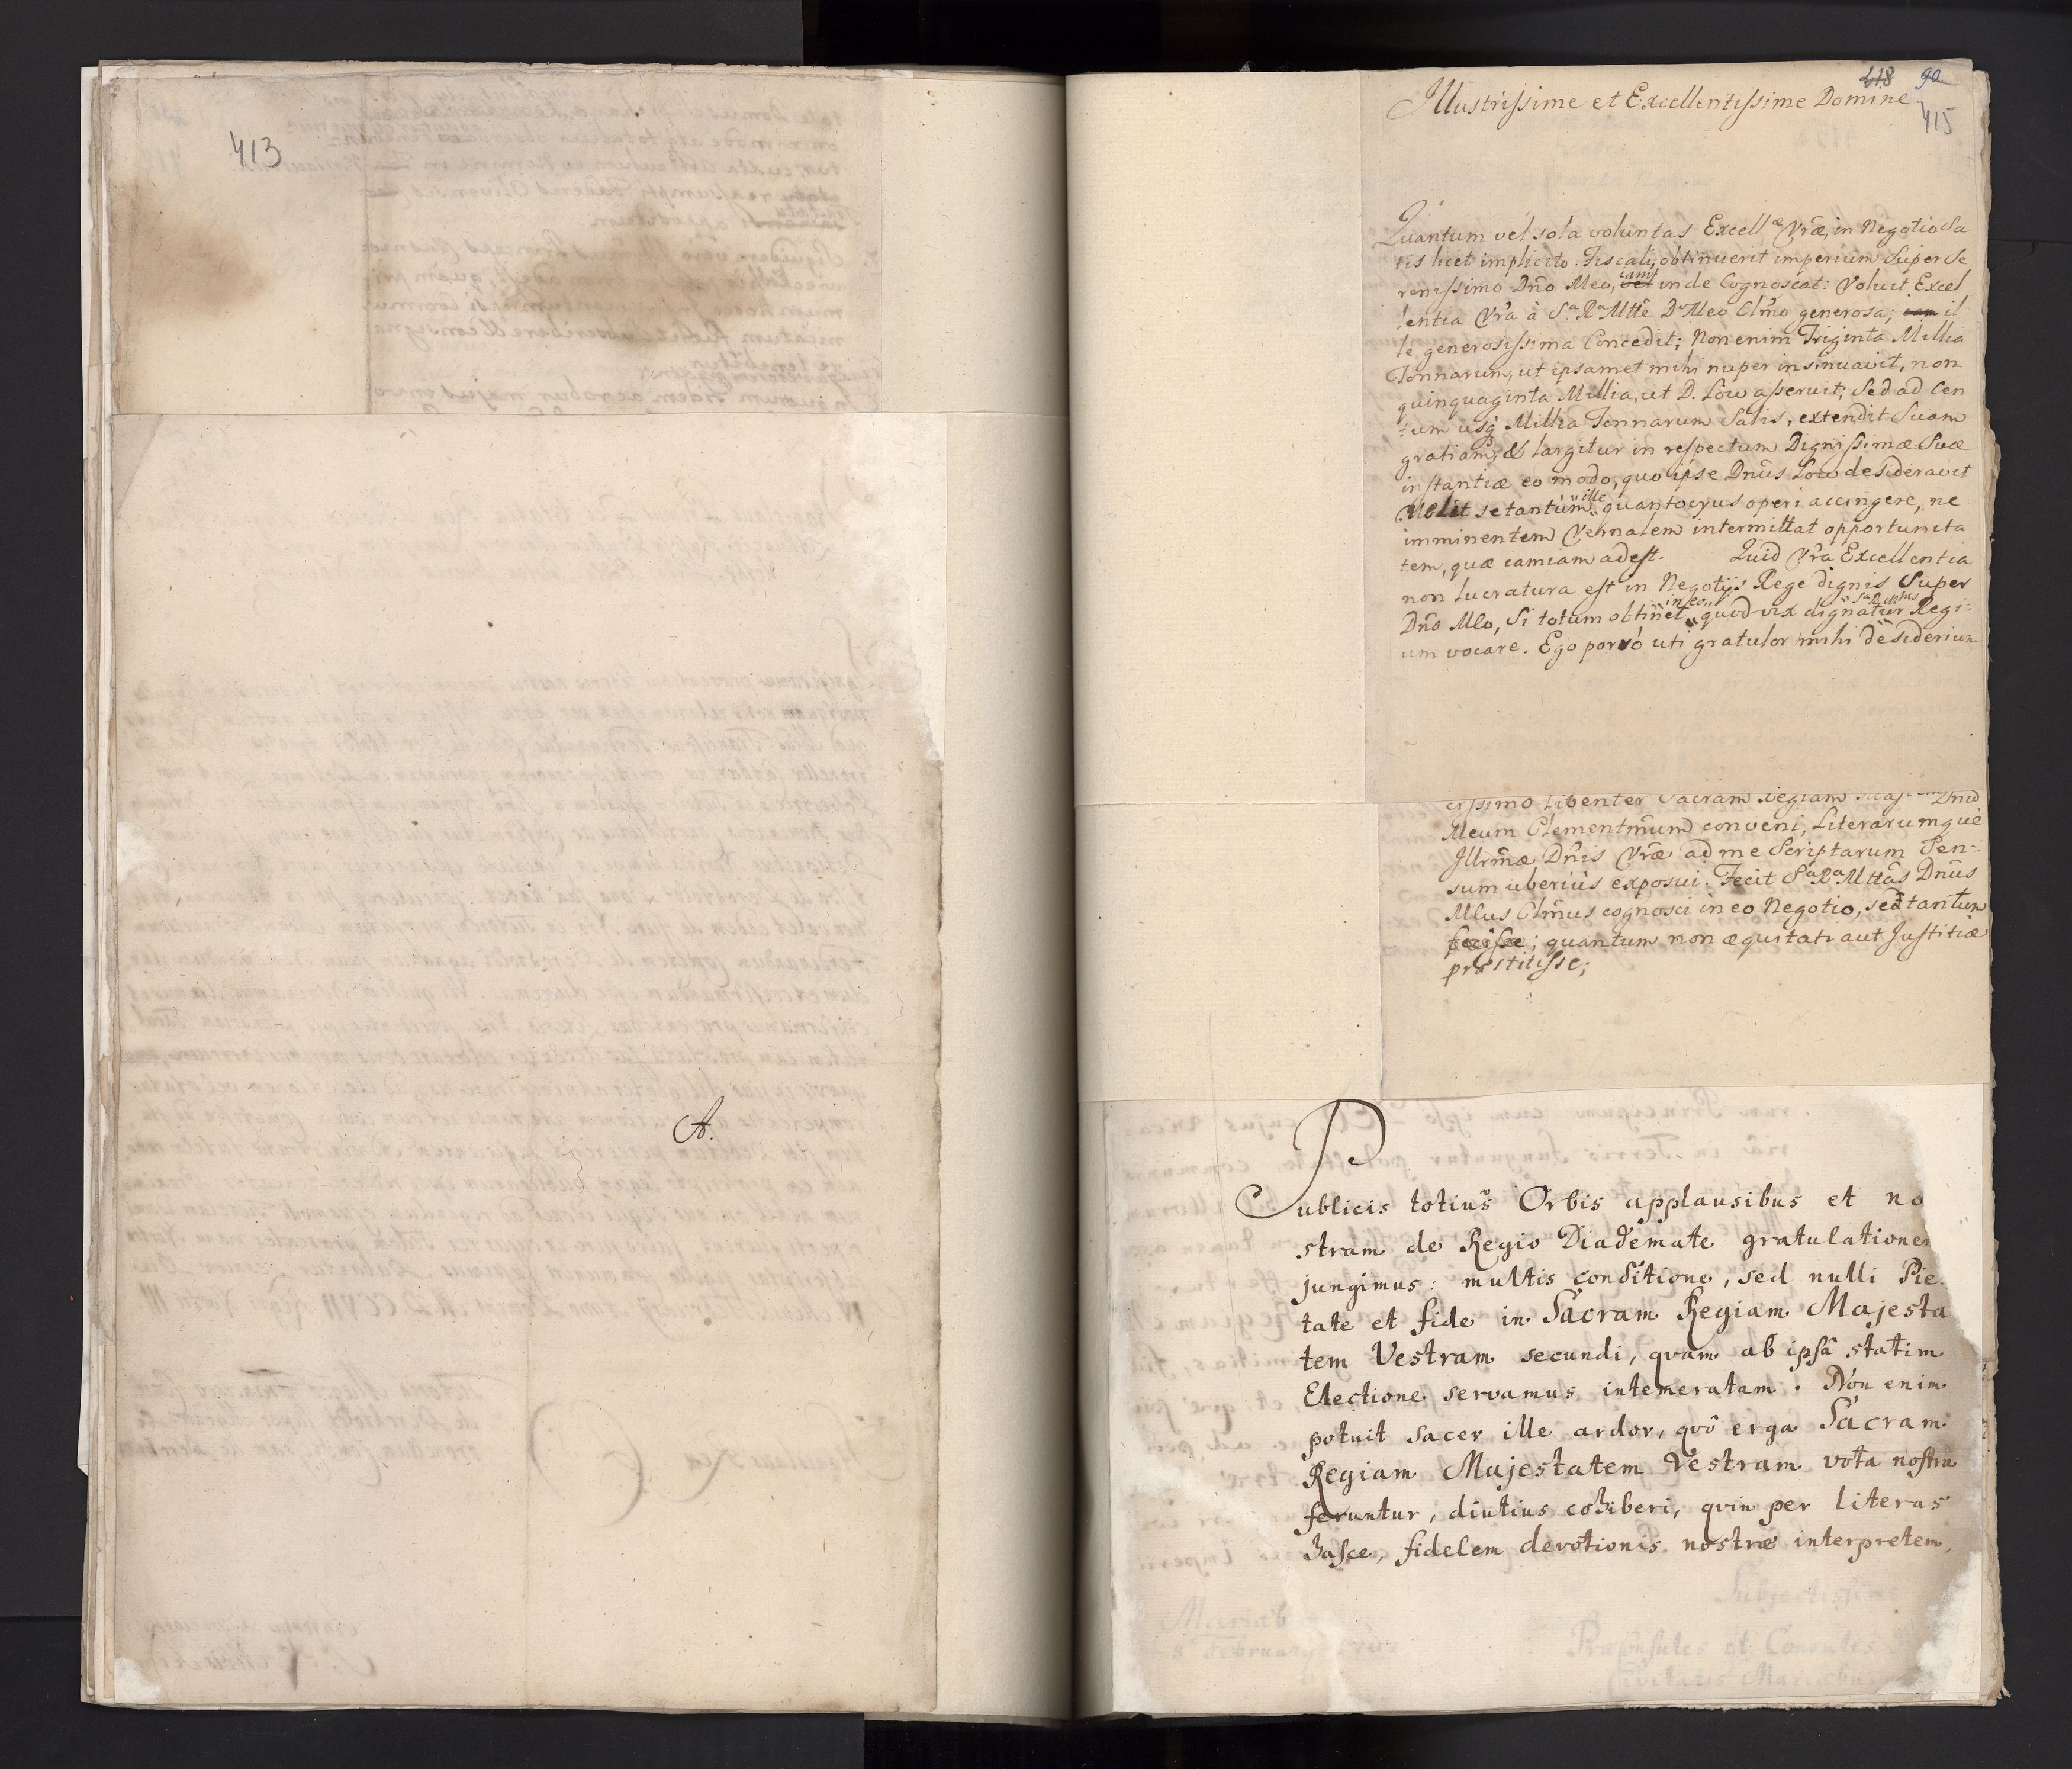 413
A.
418 90
Illustrissime et Excellentissime Domine
415
Quantum vel sola voluntas Excellæ Vræ, in Negotio Sa
tis licet implicito Fiscali, obtinuerit imperium Super Se
renissimo Dño Meo, inde Cognoscat: Voluit Excel
lentia Vra à Sa Ra Mtte Dno Meo Clmo generosa; il
le generosissima Concedit; Non enim Triginta Millia
Tonnarum, ut ipsamet mihi nuper insinuavit, non
quinquaginta Millia, ut D. Low asseruit; Sed ad Cen
tum usq Millia Tonnarum Salis, extendit Suam
gratiam, & largitur in respectum Dignissimæ Suæ
instantiæ eo modo, quo ipse Dnus Low desideravit
Velit se tantum ille quantocyus operi accingere, ne
imminentem Vernalem intermittat opportunita
tem, quæ iamiam adest. Quid Vra Excellentia
non lucratura est in Negotijs Rege dignis Super
Dño Mo, Si totum obtinet in eo quod vix dignatur Sa R Mtas Regi-
um vocare. Ego porró uti gratulor mihi desiderium
crissimo libenter Sacram Regiam Dnũ
Meum Clementmum conveni, Literarumque
Illrmæ Dnis Vræ ad me Scriptarum Sen-
sum uberiùs exposui. Fecit Sa Ra Mttas Dnus
Mus Clmus cognosci in eo Negotio, sed tantum
fecisse; quantum non æquitati aut Justitiæ
præstitisse;
Publicis totius Orbis applausibus et no
stram de Regio Diademate gratulatione
jungimus: multis conditione, sed nulli Pie
tate et fide in Sacram Regiam Majesta
tem Vestram secundi, qvam ab ipsâ statim
Electione servamus intemeratam. Non enim
potuit sacer ille ardor, qvô erga Sacram
Regiam Majestatem Vestram vota nostra
feruntur, diutius cohiberi, qvin per literas
hasce, fidelem devotionis nostræ interpretem,